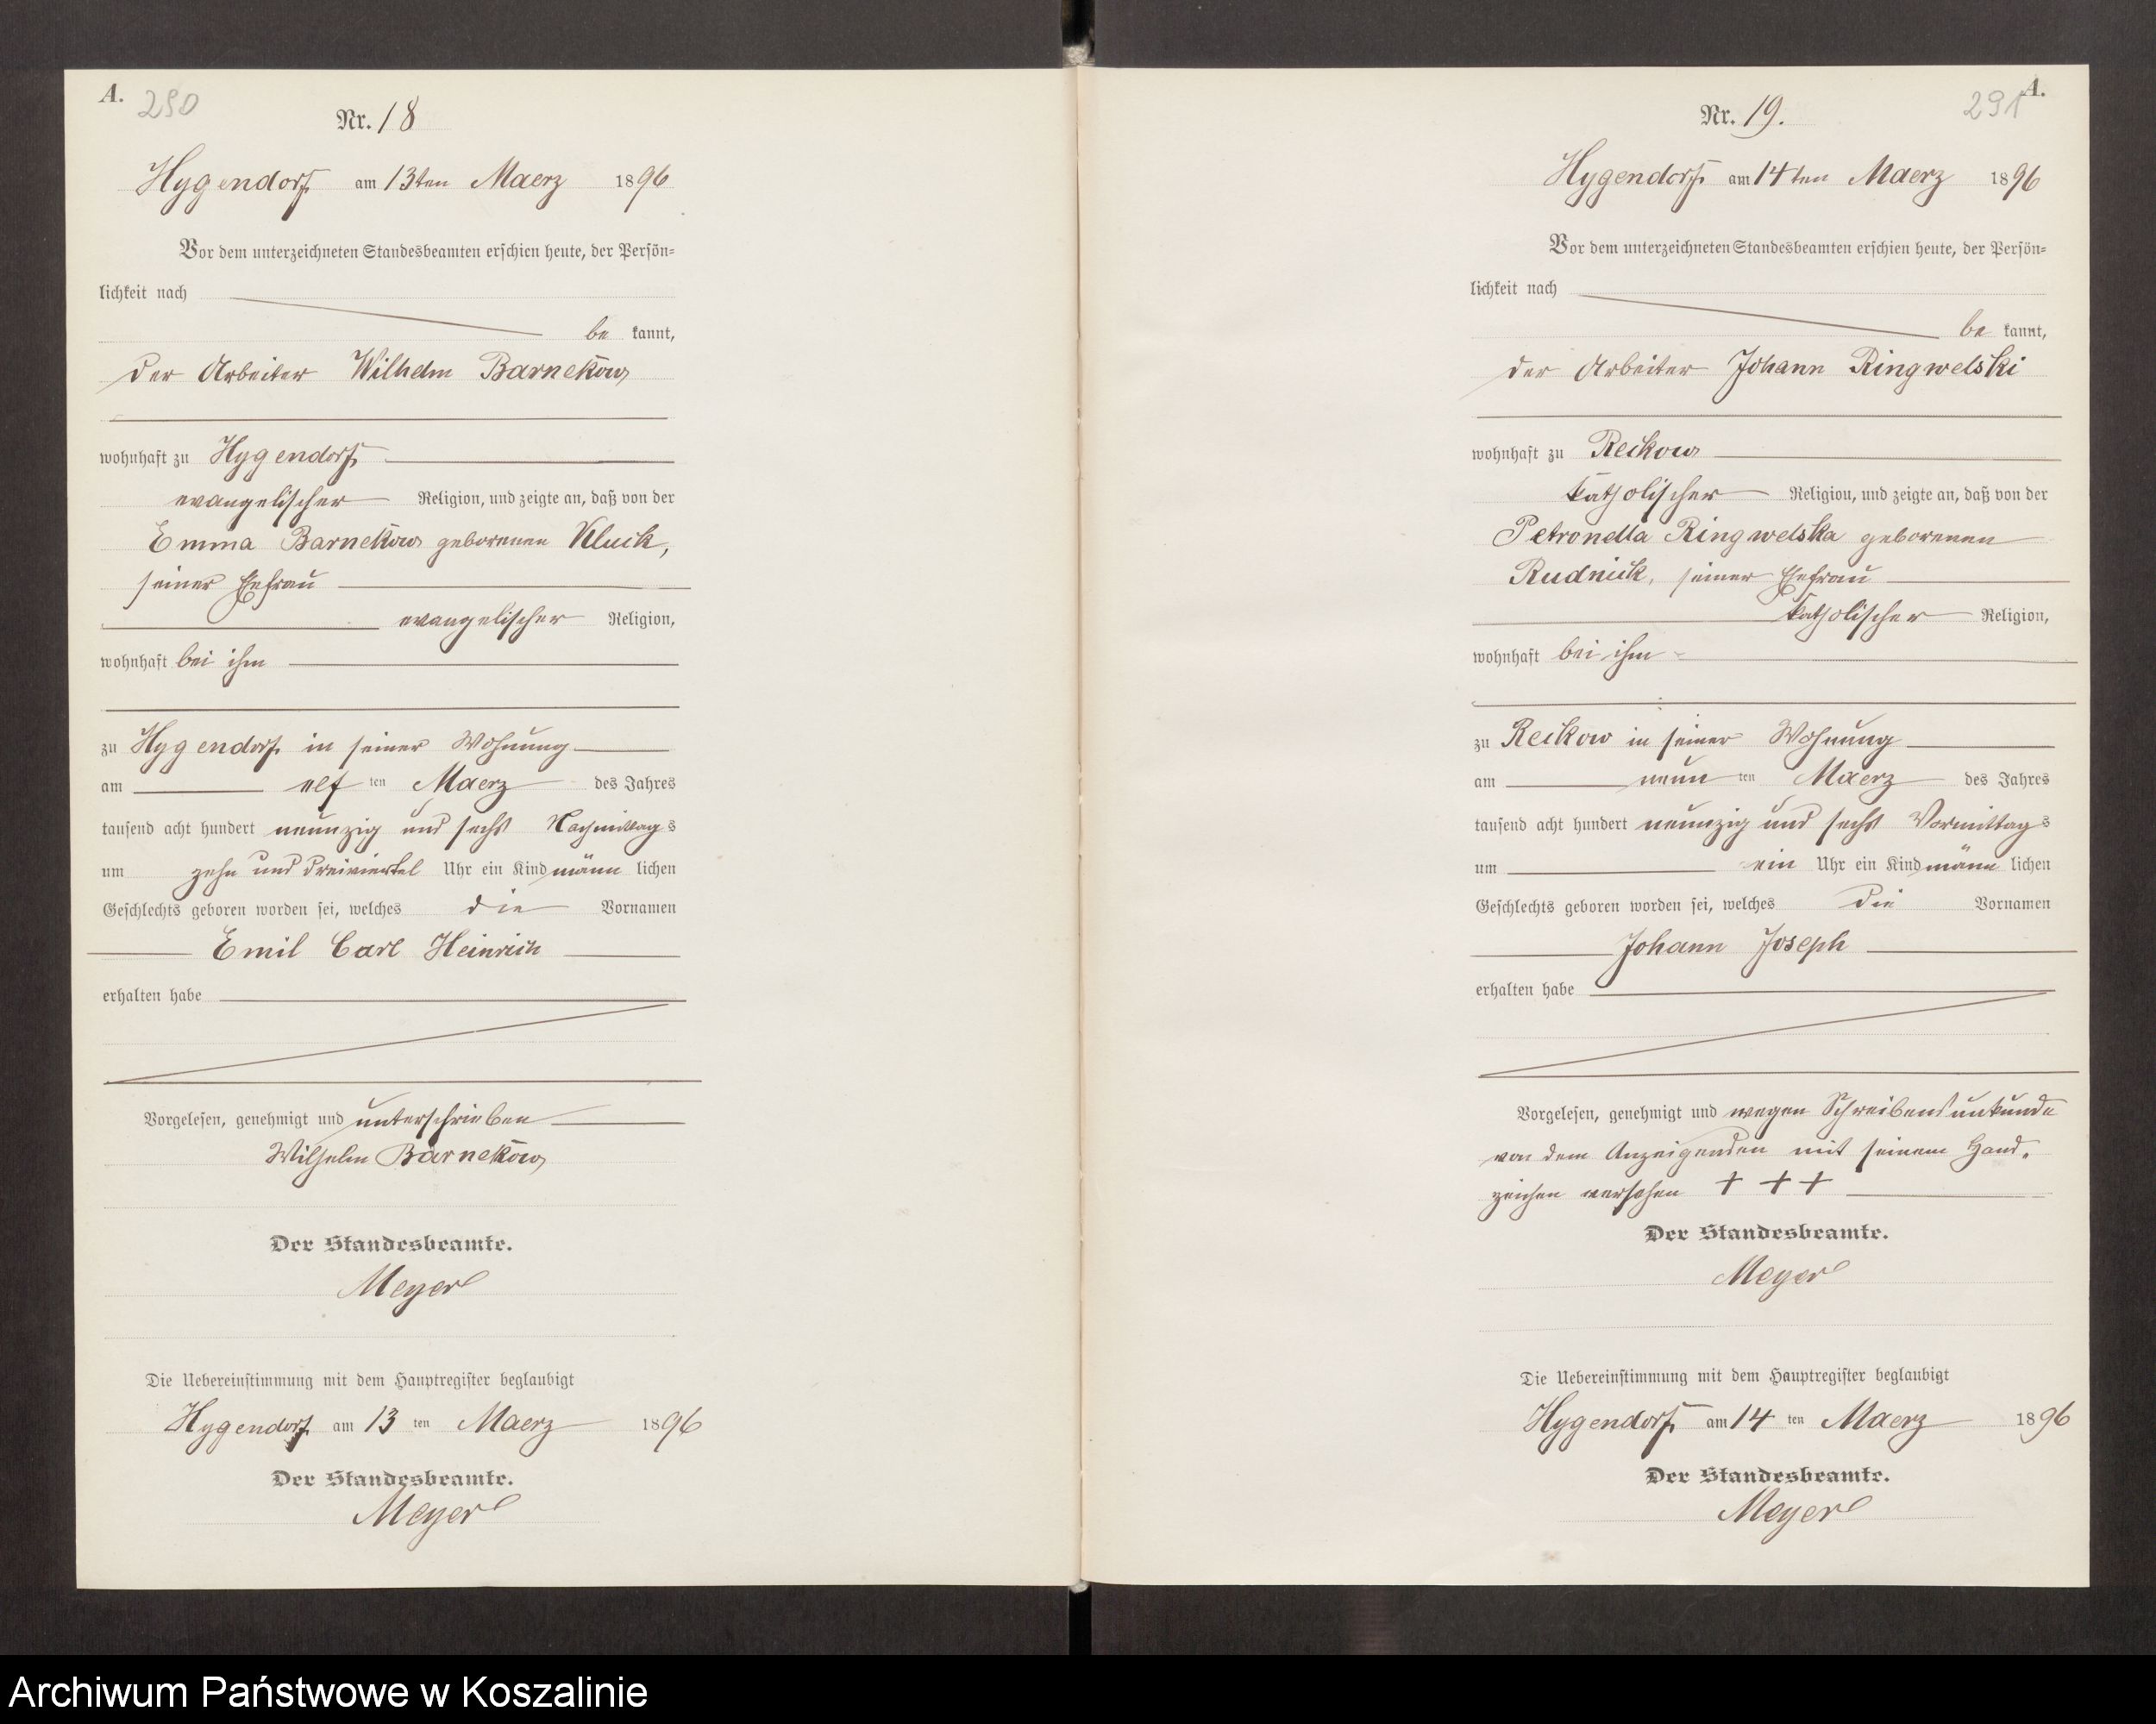 A. 290
Nr. 18
Hygendorf am 13ten Maerz 1896
Vor dem unterzeichneten Standesbeamten erschien heute, der Persön=
lichkeit nach
be kannt,
der Arbeiter Wilhelm Barnekow
wohnhaft zu Hygendorf
evangelischer Religion, und zeigte an, daß von der
Emma Barnekow geborenen Kluck,
seiner Ehefrau
evangelischer Religion,
wohnhaft bei ihm
zu Hygendorf in seiner Wohnung
am elf ten Maerz des Jahres
tausend acht hundert neunzig und sechs Nachmittags
um zehn und dreiviertel Uhr ein Kind männ lichen
Geschlechts geboren worden sei, welches die Vornamen
Emil Carl Heinrich
erhalten habe
Vorgelesen, genehmigt und unterschrieben
Wilhelm Barnekow
Der Standesbeamte.
Meyer
Die Uebereinstimmung mit dem Hauptregister beglaubigt
Hygendorf am 13 ten Maerz 1896
Der Standesbeamte.
Meyer
291 A.
Nr. 19.
Hygendorf am 14ten Maerz 1896
Vor dem unterzeichneten Standesbeamten erschien heute, der Persön=
lichkeit nach
be kannt,
der Arbeiter Johann Ringwelski
wohnhaft zu Reckow
katholischer Religion, und zeigte an, daß von der
Petronella Ringwelska geborenen
Rudnick, seiner Ehefrau
katholischer Religion,
wohnhaft bei ihm
zu Reckow in seiner Wohnung
am neun ten Maerz des Jahres
tausend acht hundert neunzig und sechs Vormittags
um ein Uhr ein Kind männ lichen
Geschlechts geboren worden sei, welches die Vornamen
Johann Joseph
erhalten habe
Vorgelesen, genehmigt und wegen Schreibensunkunde
von dem Anzeigenden mit seinem Hand-
zeichen versehen + + +
Der Standesbeamte.
Meyer
Die Uebereinstimmung mit dem Hauptregister beglaubigt
Hygendorf am 14 ten Maerz 1896
Der Standesbeamte.
Meyer
Archiwum Państwowe w Koszalinie